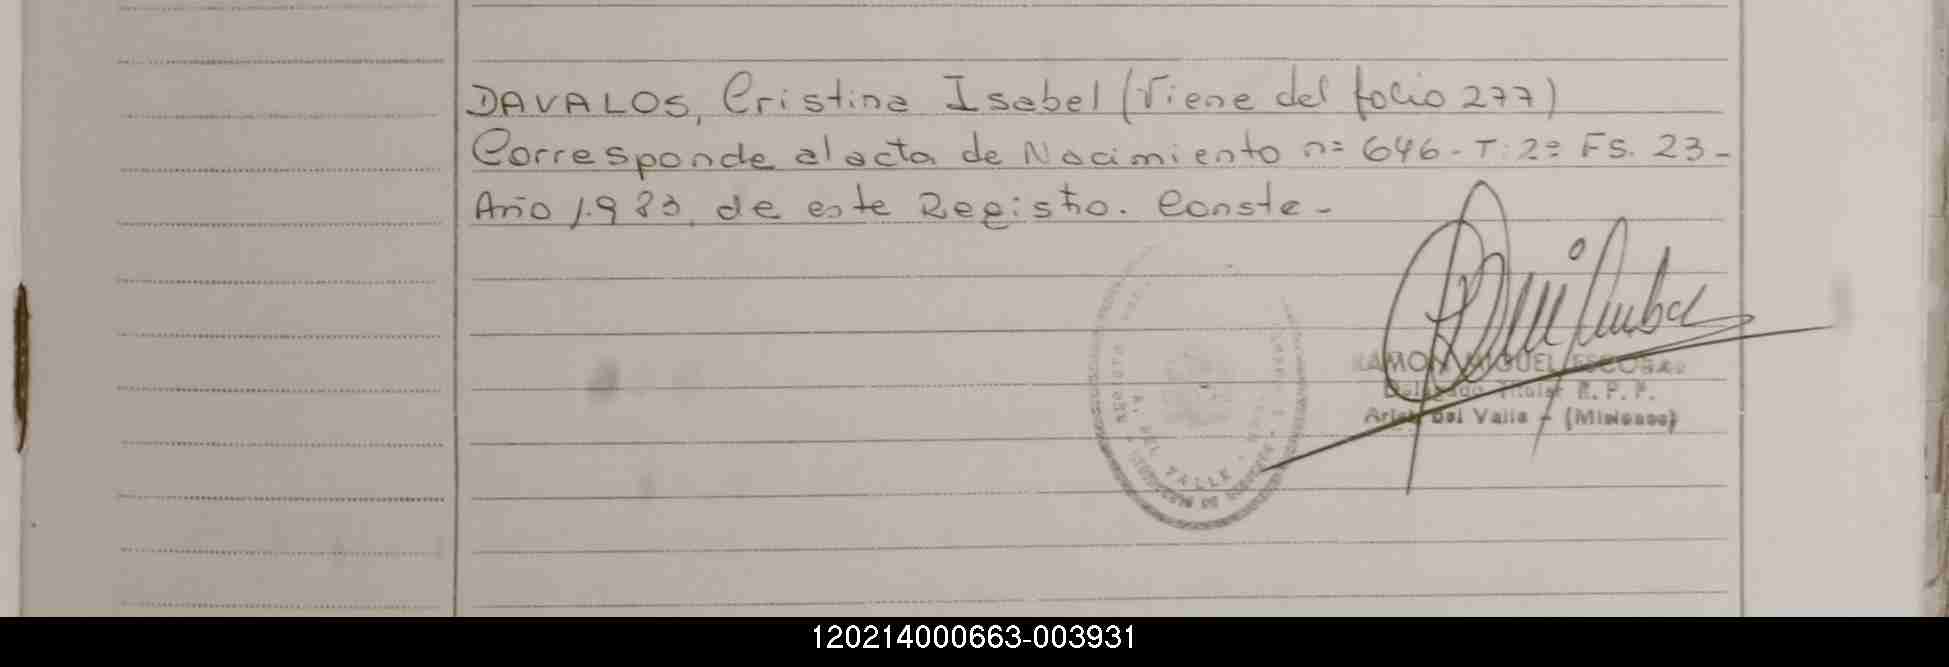 DAVALOS, Cristina Isabel (Viene del folio 277)
Corresponde al acta de Nacimiento nº 646 - T: 2º Fs. 23 -
Año 1.983, de este Registro. Conste -
RAMON MIGUEL ESCOBAR
Delegado Titular R. P. P.
Aristóbulo Del Valle - (Misiones)
DEL VALLE
120214000663-003931